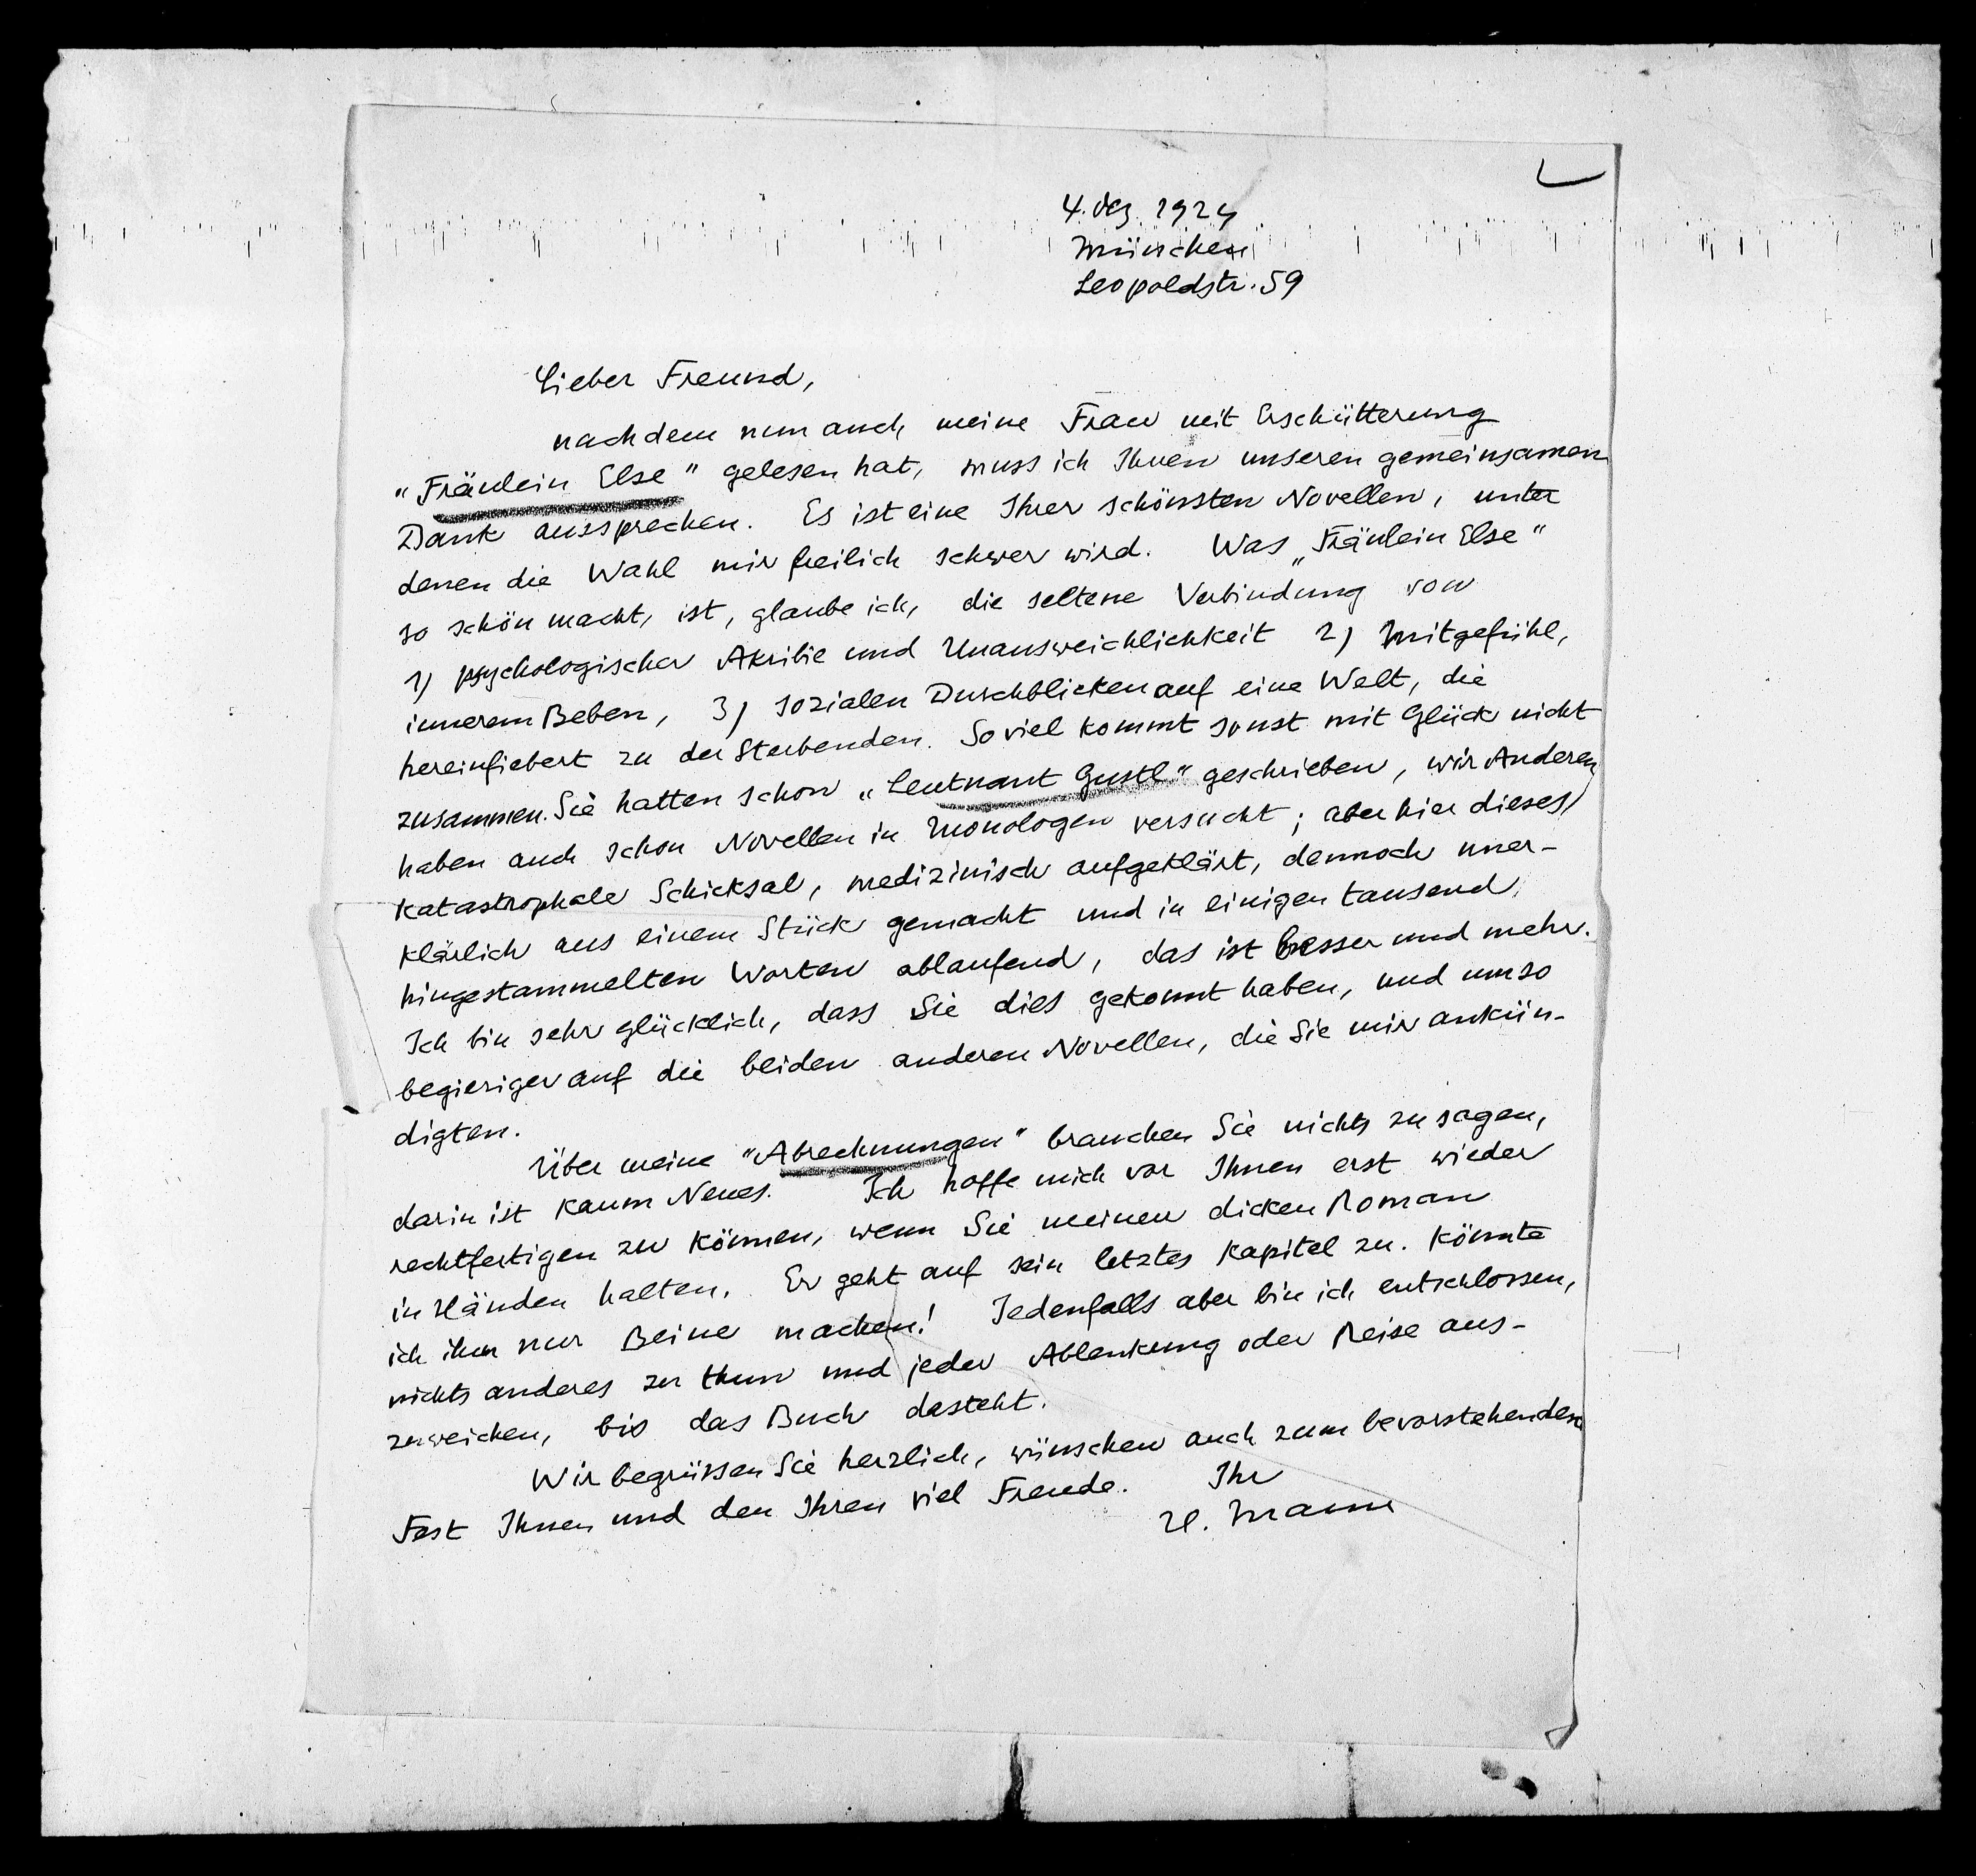 4. Dez. 1924
München
Leopoldstr. 59
Lieber Freund,
nachdem nun auch meine Frau mit Erschütterung
„Fräulein Else" gelesen hat, muss ich Ihnen unseren gemeinsamen
Dank aussprechen. Es ist eine Ihrer schönsten Novellen, unter
denen die Wahl mir freilich schwer wird. Was „Fräulein Else"
so schön macht, ist, glaube ich, die seltene Verbindung von
1) psychologischer Akribie und Unausweichlichkeit 2) Mitgefühl,
innerem Beben, 3) sozialen Durchblicken auf eine Welt, die
hereinfiebert zu der Sterbenden. So viel kommt sonst mit Glück nicht
zusammen. Sie hatten schon „Leutnant Gustl" geschrieben, wir Anderen
haben auch schon Novellen in Monologen versucht; aber hier dieses
katastrophale Schicksal, medizinisch aufgeklärt, dennoch uner-
klärlich aus einem Stück gemacht und in einigen tausend
hingestammelten Worten ablaufend, das ist besser und mehr.
Ich bin sehr glücklich, dass Sie dies gekonnt haben, und umso
begieriger auf die beiden anderen Novellen, die Sie mir ankün-
digten.
Über meine "Abrechnungen" brauchen Sie nichts zu sagen,
darin ist kaum Neues. Ich hoffe mich vor Ihnen erst wieder
rechtfertigen zu können, wenn Sie meinen dicken Roman
in Händen halten. Er geht auf sein letztes Kapitel zu. Könnte
ich ihm nur Beine machen! Jedenfalls aber bin ich entschlossen,
nichts anderes zu thun und jeder Ablenkung oder Reise aus-
zuweichen, bis das Buch dasteht.
Wir begrüssen Sie herzlich, wünschen auch zum bevorstehenden
Fest Ihnen und den Ihren viel Freude. Ihr
H. Mann